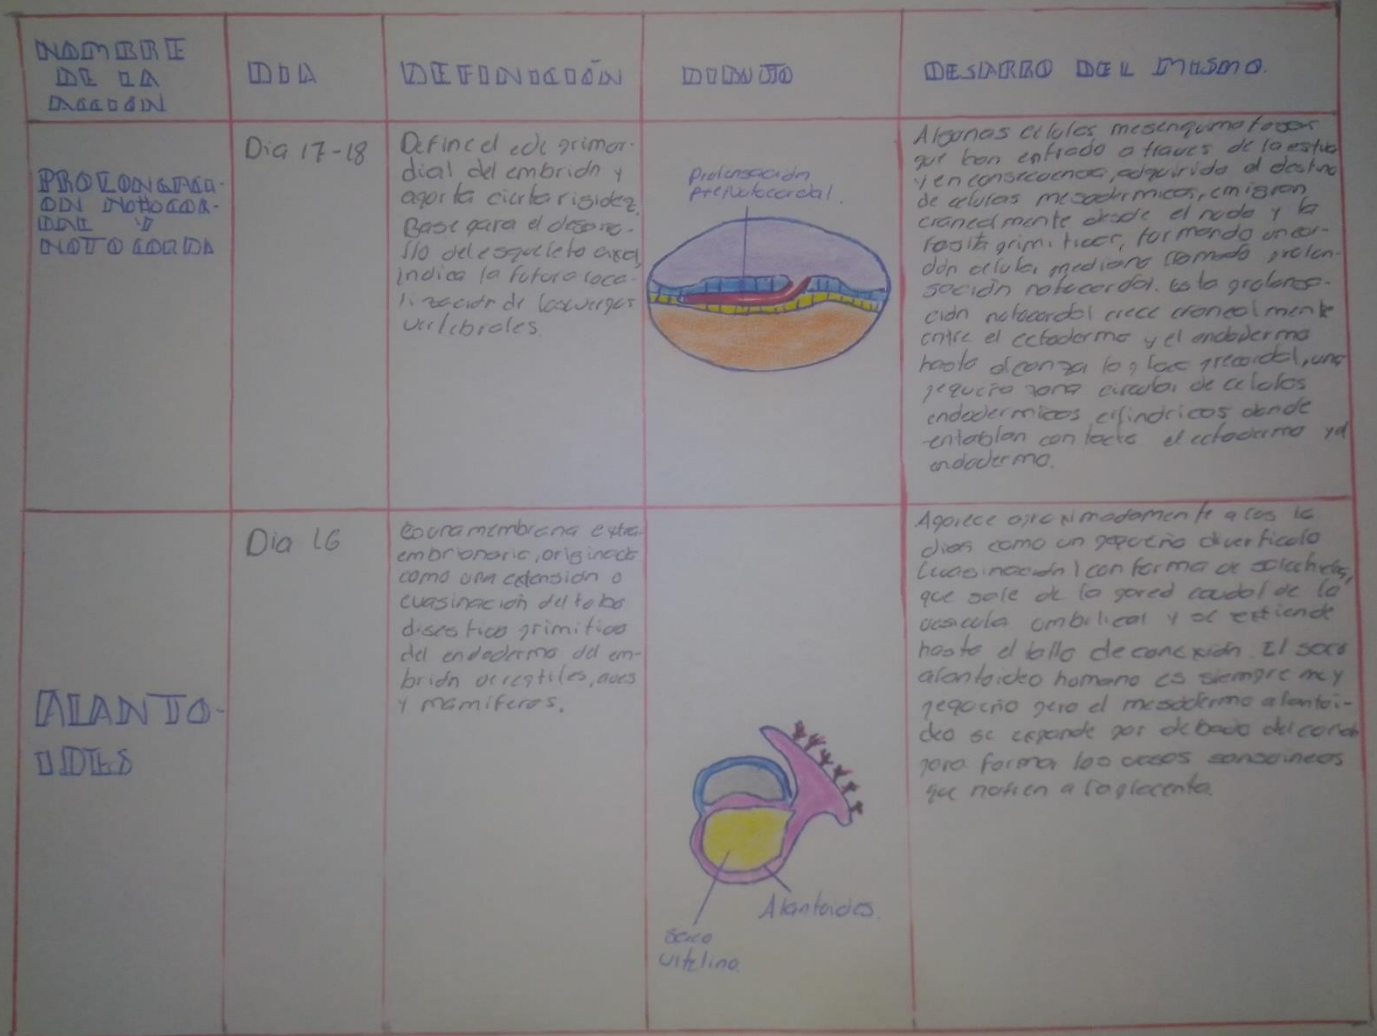 NOMBRE
DE LA
ACCIÓN
DIA
DEFINICIÓN
DIBUJO
DESARRO DEL MISMO.
PROLONGACI-
ON NOTOCOR-
DAL Y
NOTOCORDA
Dia 17-18
Define el eje primor-
dial del embrión y
aporta cierta rigidez.
Base para el desarro-
llo del esqueleto axial,
indica la futura loca-
lización de los cuerpos
vertebrales.
Prolongación
prenotocordal.
Algunas celulas mesenquimatosas
que han entrado a traves de la estria
y en consecuencia, adquirido el destino
de celulas mesodermicas, emigran
cranealmente desde el nodo y la
fosita primitivas, formando un cor-
dón celular mediano llamado prolon-
gación notocordal. Esta prolonga-
ción notocordal crece cranealmente
entre el ectodermo y el endodermo
hasta alcanza la placa precordal, una
pequeña zona circular de celulas
endodermicas cilindricas donde
entablan contacto el ectodermo y el
endodermo.
ALANTO-
IDES
Dia 16
Es una membrana extra-
embrionaria, originada
como una extensión o
evaginación del tubo
digestivo primitivo
del endodermo del em-
brión de reptiles, aves
y mamíferos.
Alantoides.
Saco
Vitelino.
Aparece aproximadamente a los 16
dias como un pequeño diverticulo
con forma de salchicha,
que sale de la pared caudal de la
vesicula umbilical y se extiende
hasta el tallo de conexión. El saco
alantoideo humano es siempre muy
pequeño pero el mesodermo alantoi-
deo se expande por debajo del corion
para forma los vasos sanguineos
que nutren a la placenta.